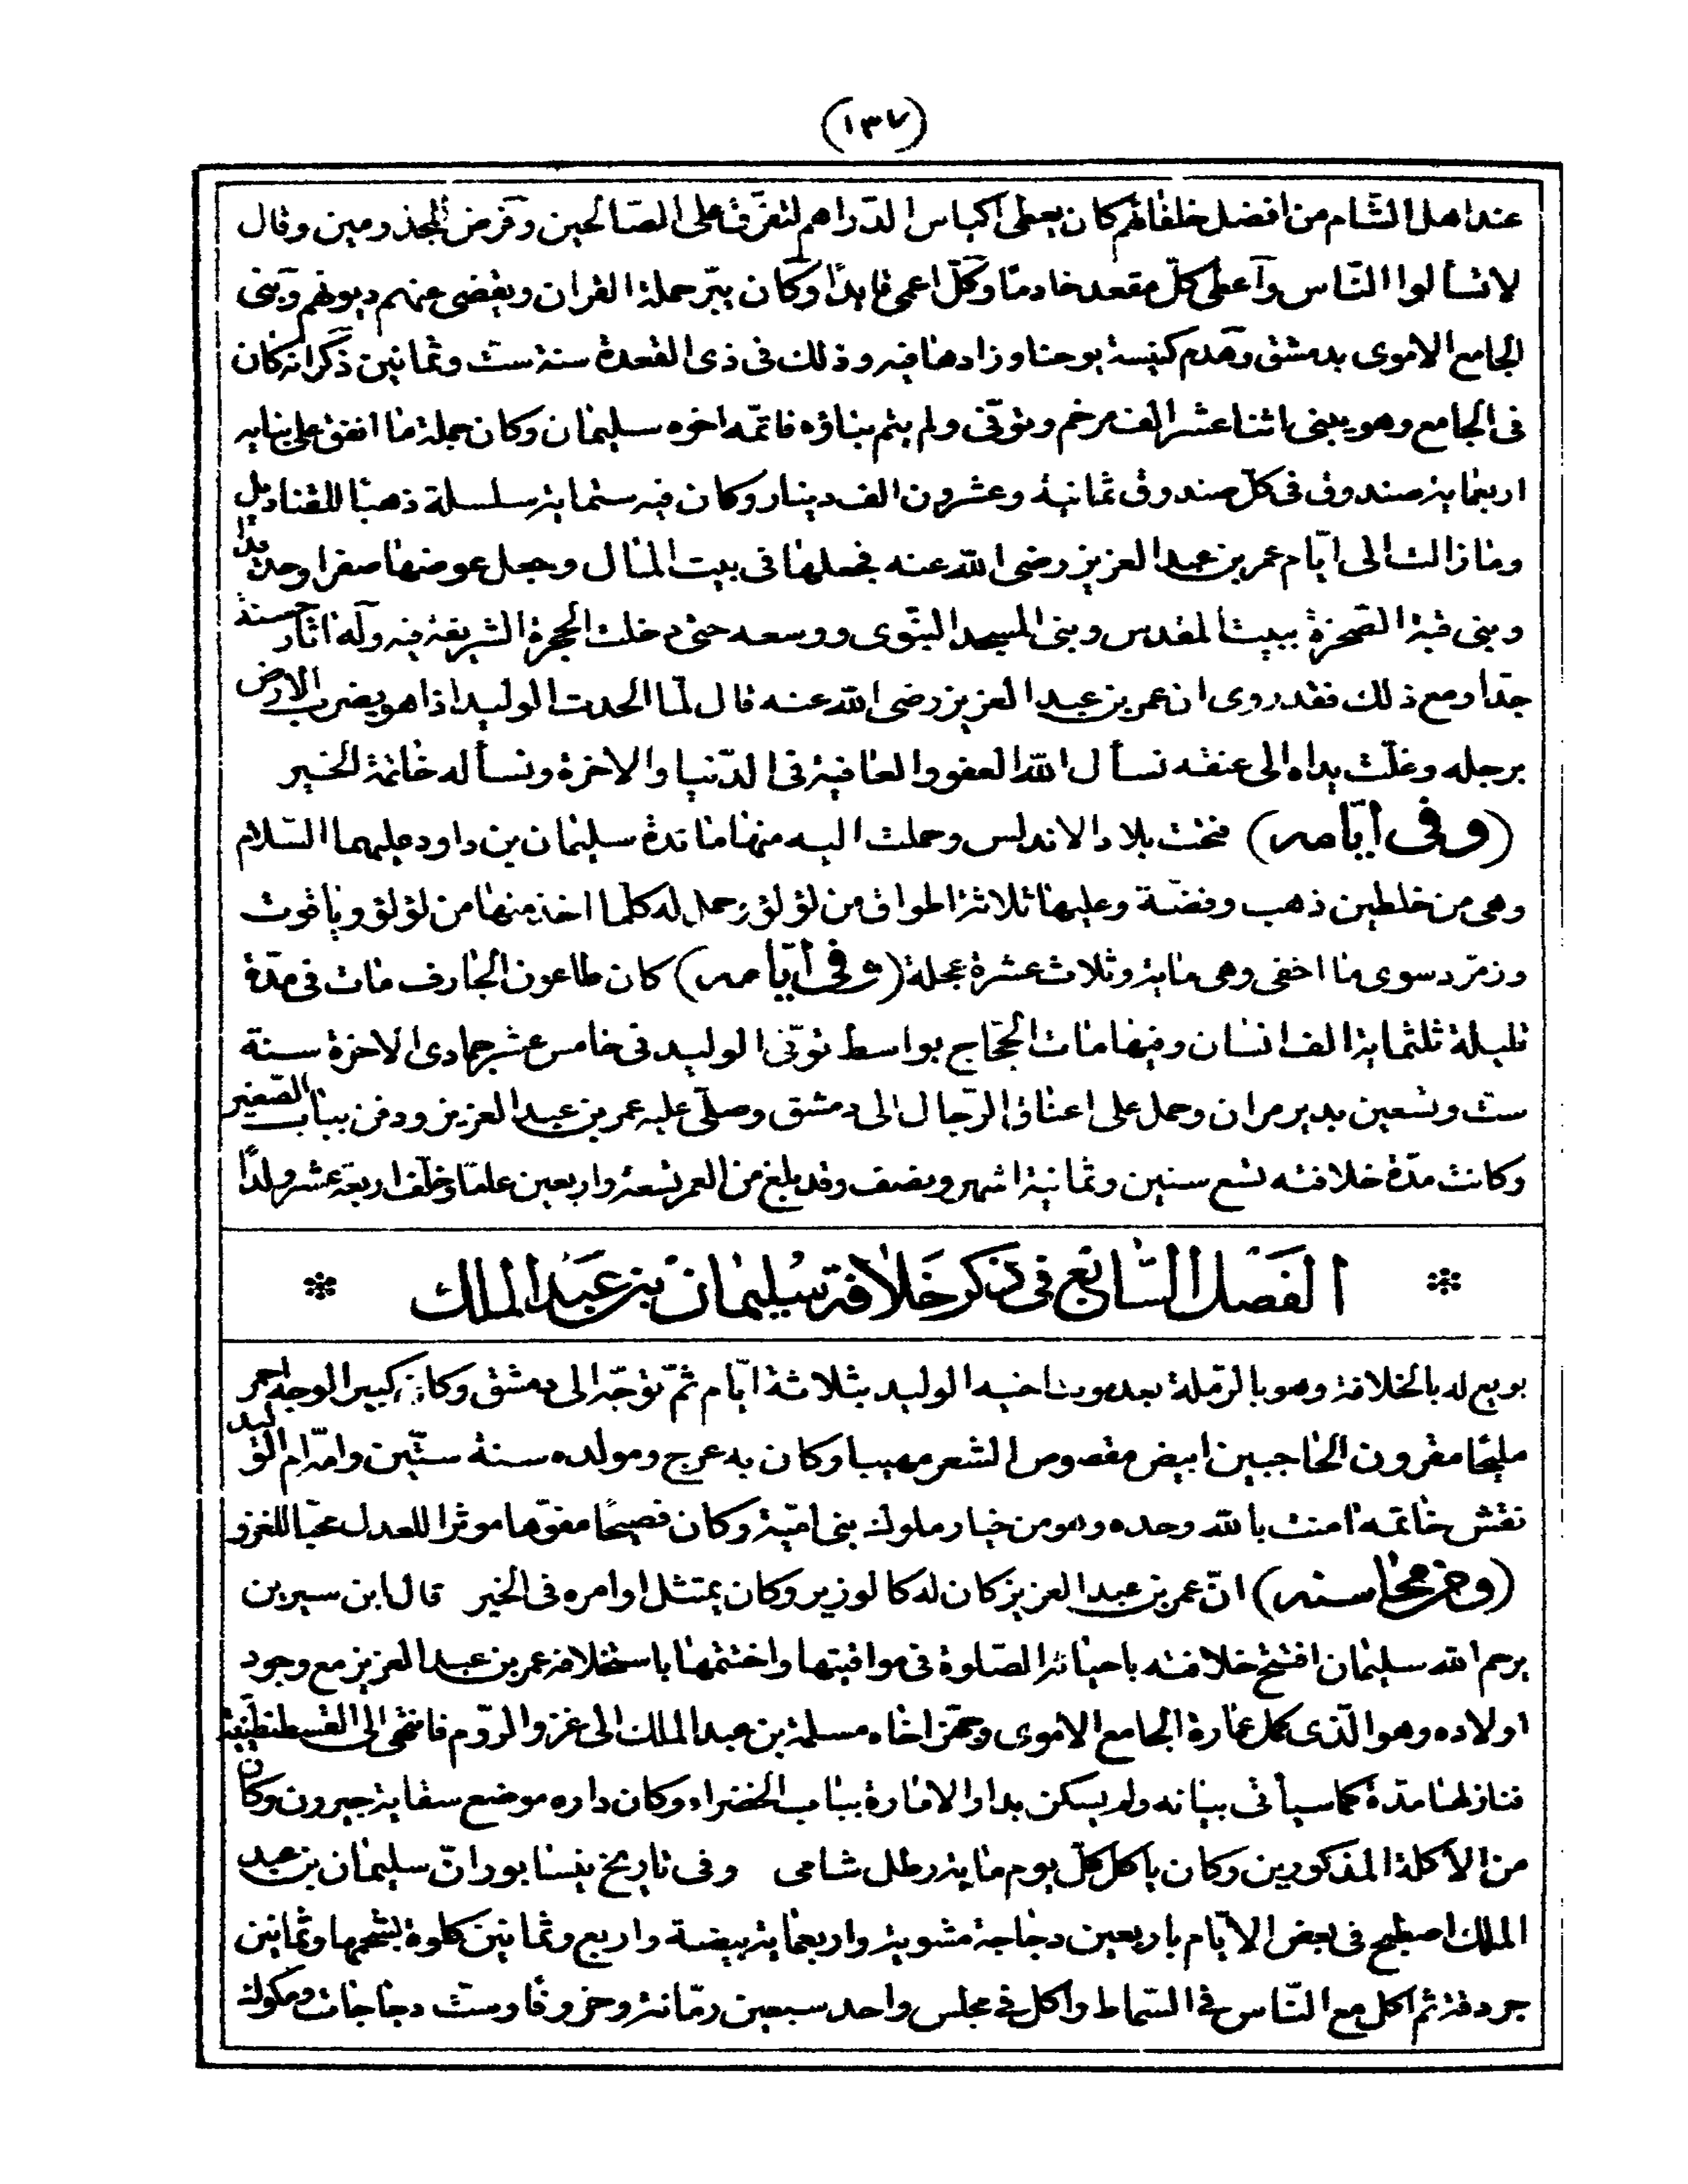 (١٣٧)
عند اهل الشّام من افضل خلفائهم كان يعطى اكياس الدّراهم لتفرّق على الصّالحين وفرض للمجذومين وقال
لا تسألوا النّاس وأعطى كلّ مقعد خادمًا وكلّ اعمى قايدًا وكان يبرّ حملة القران ويقضى عنهم ديونهم وبنى
الجامع الاموى بدمشق وهدم كنيسة يوحنا وزادها فيه وذلك فى ذى القعدة سنة ستّ وثمانين ذكر انه كان
فى الجامع وهو يبنى اثنا عشر الف مرخم وتوفّى ولم يتم بناؤه فاتمّه اخوه سليمان وكان جملة ما انفق على بنايه
اربعماية صندوق فى كلّ صندوق ثمانية وعشرون الف دينار وكان فيه ستماية سلسلة ذهبًا للقناديل
وما زالت الى ايّام عمر بن عبد العزيز رضى الله عنه فجعلها فى بيت المال وجعل عوضها صفرا وحديدا
وبنى قبة الصّخرة ببيت المقدس وبنى المسجد النبّوى ووسعه حتى دخلت الحجرة الشريفة فيه وله اثار حسنة
جدّا ومع ذلك فقد روى ان عمر بن عبد العزيز رضى الله عنه قال لمّا الحدت الوليد اذا هو يضرب الارض
برجله وغلّت يداه الى عنقه نسأل الله العفو والعافية فى الدّنيا والاخرة ونسأله خاتمة الخير
(وفى أيّامه) فتحت بلاد الاندلس وحملت اليه منها مائدة سليمان بن داود عليهما السّلام
وهى من خلطين ذهب وفضّة وعليها ثلاثة اطواق من لؤلؤ وحمل له كلّما اخذ منها من لؤلؤ وياقوت
وزمرّد سوى ما اخفى وهى ماية وثلاث عشرة عجلة (وفى أيّامه) كان طاعون الجارف مات فى مدّة
قليلة ثلثماية الف انسان وفيها مات الحجّاج بواسط توفّى الوليد فى خامس عشر جمادى الاخرة سنة
ستّ وتسعين بدير مران وحمل على اعناق الرّجال الى دمشق وصلّى عليه عمر بن عبد العزيز ودفن بباب الصّغير
وكانت مدّة خلافته تسع سنين وثمانية اشهر ونصف وقد بلغ من العمر تسعة واربعين عامًا وخلّف اربعة عشر ولدًا
الفصل السّابع فى ذكر خلافة سليمان بن عبد الملك
بويع له بالخلافة وهو بالرّملة بعد موت اخيه الوليد بثلاثة ايّام ثمّ توجّه الى دمشق وكان كبير الوجه احمر
مليحًا مقرون الحاجبين ابيض مقصوص الشعر مهيبا وكان به عرج ومولده سنة ستّين وامّه ام الوليد
نقش خاتمه امنت بالله وحده وهو من خيار ملوك بنى اميّة وكان فصيحًا مفوّها موثرا للعدل محبّا للغزو
(ومن محاسنه) انّ عمر بن عبد العزيز كان له كالوزير وكان يمتثل اوامره فى الخير قال ابن سيرين
يرحم الله سليمان افتتح خلافته باحيائه الصّلوة فى مواقيتها واختتمها باستخلافه عمر بن عبد العزيز مع وجود
اولاده وهو الّذى كمل عمارة الجامع الاموى وجهّز اخاه مسلمة بن عبد الملك الى غزو الرّوم فانتهى الى القسطنطينية
فنازلها مدّة كما سيأتى بيانه ولم يسكن بدار الامارة بباب الخضراء وكان داره موضع سقاية جيرون وكان
من الأكلة المذكورين وكان ياكل كلّ يوم ماية رطل شامى وفى تاريخ نيسابور انّ سليمان بن عبد
الملك اصطبح فى بعض الايّام باربعين دجاجة مشوية واربعماية بيضة واربع وثمانين كلوة بشحمها وثمانين
جردقة ثم اكل مع النّاس فى السّماط واكل فى مجلس واحد سبعين رمّانة وخروفا وستّ دجاجات ومكوك